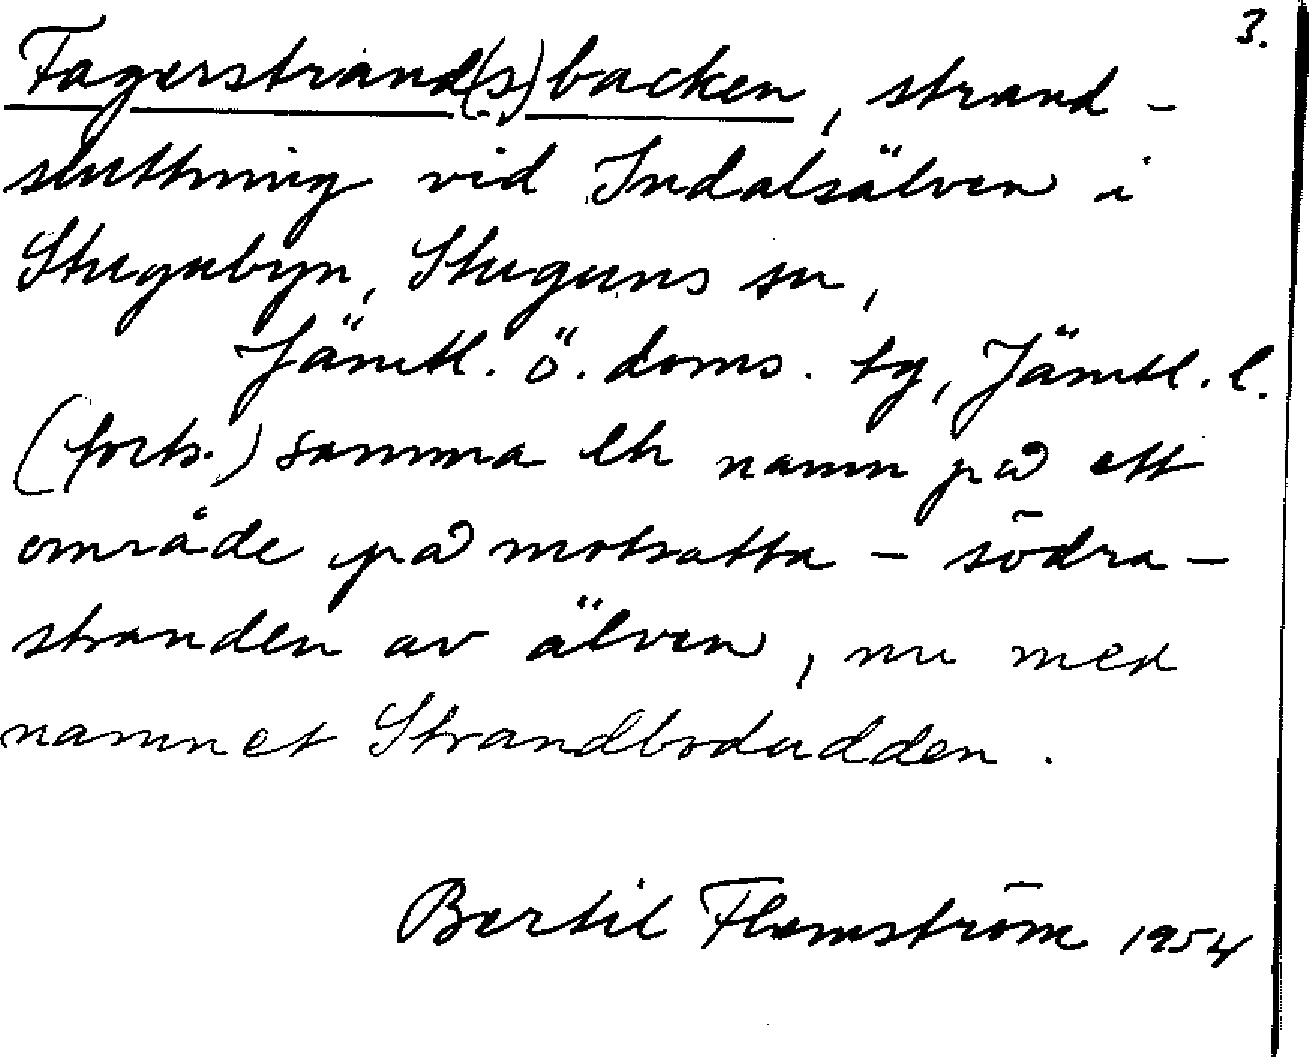 3.
Fagerstrand(s)backen, strand-
sluttning vid Indalsälven i
Stugubyn, Stuguns sn,
Jämtl. ö. doms. tg, Jämtl. l.
(forts.) samma el. namn på ett
område på motsatta - södra -
stranden av älven, nu med
namnet Strandbodudden.
Bertil Flemström 1954